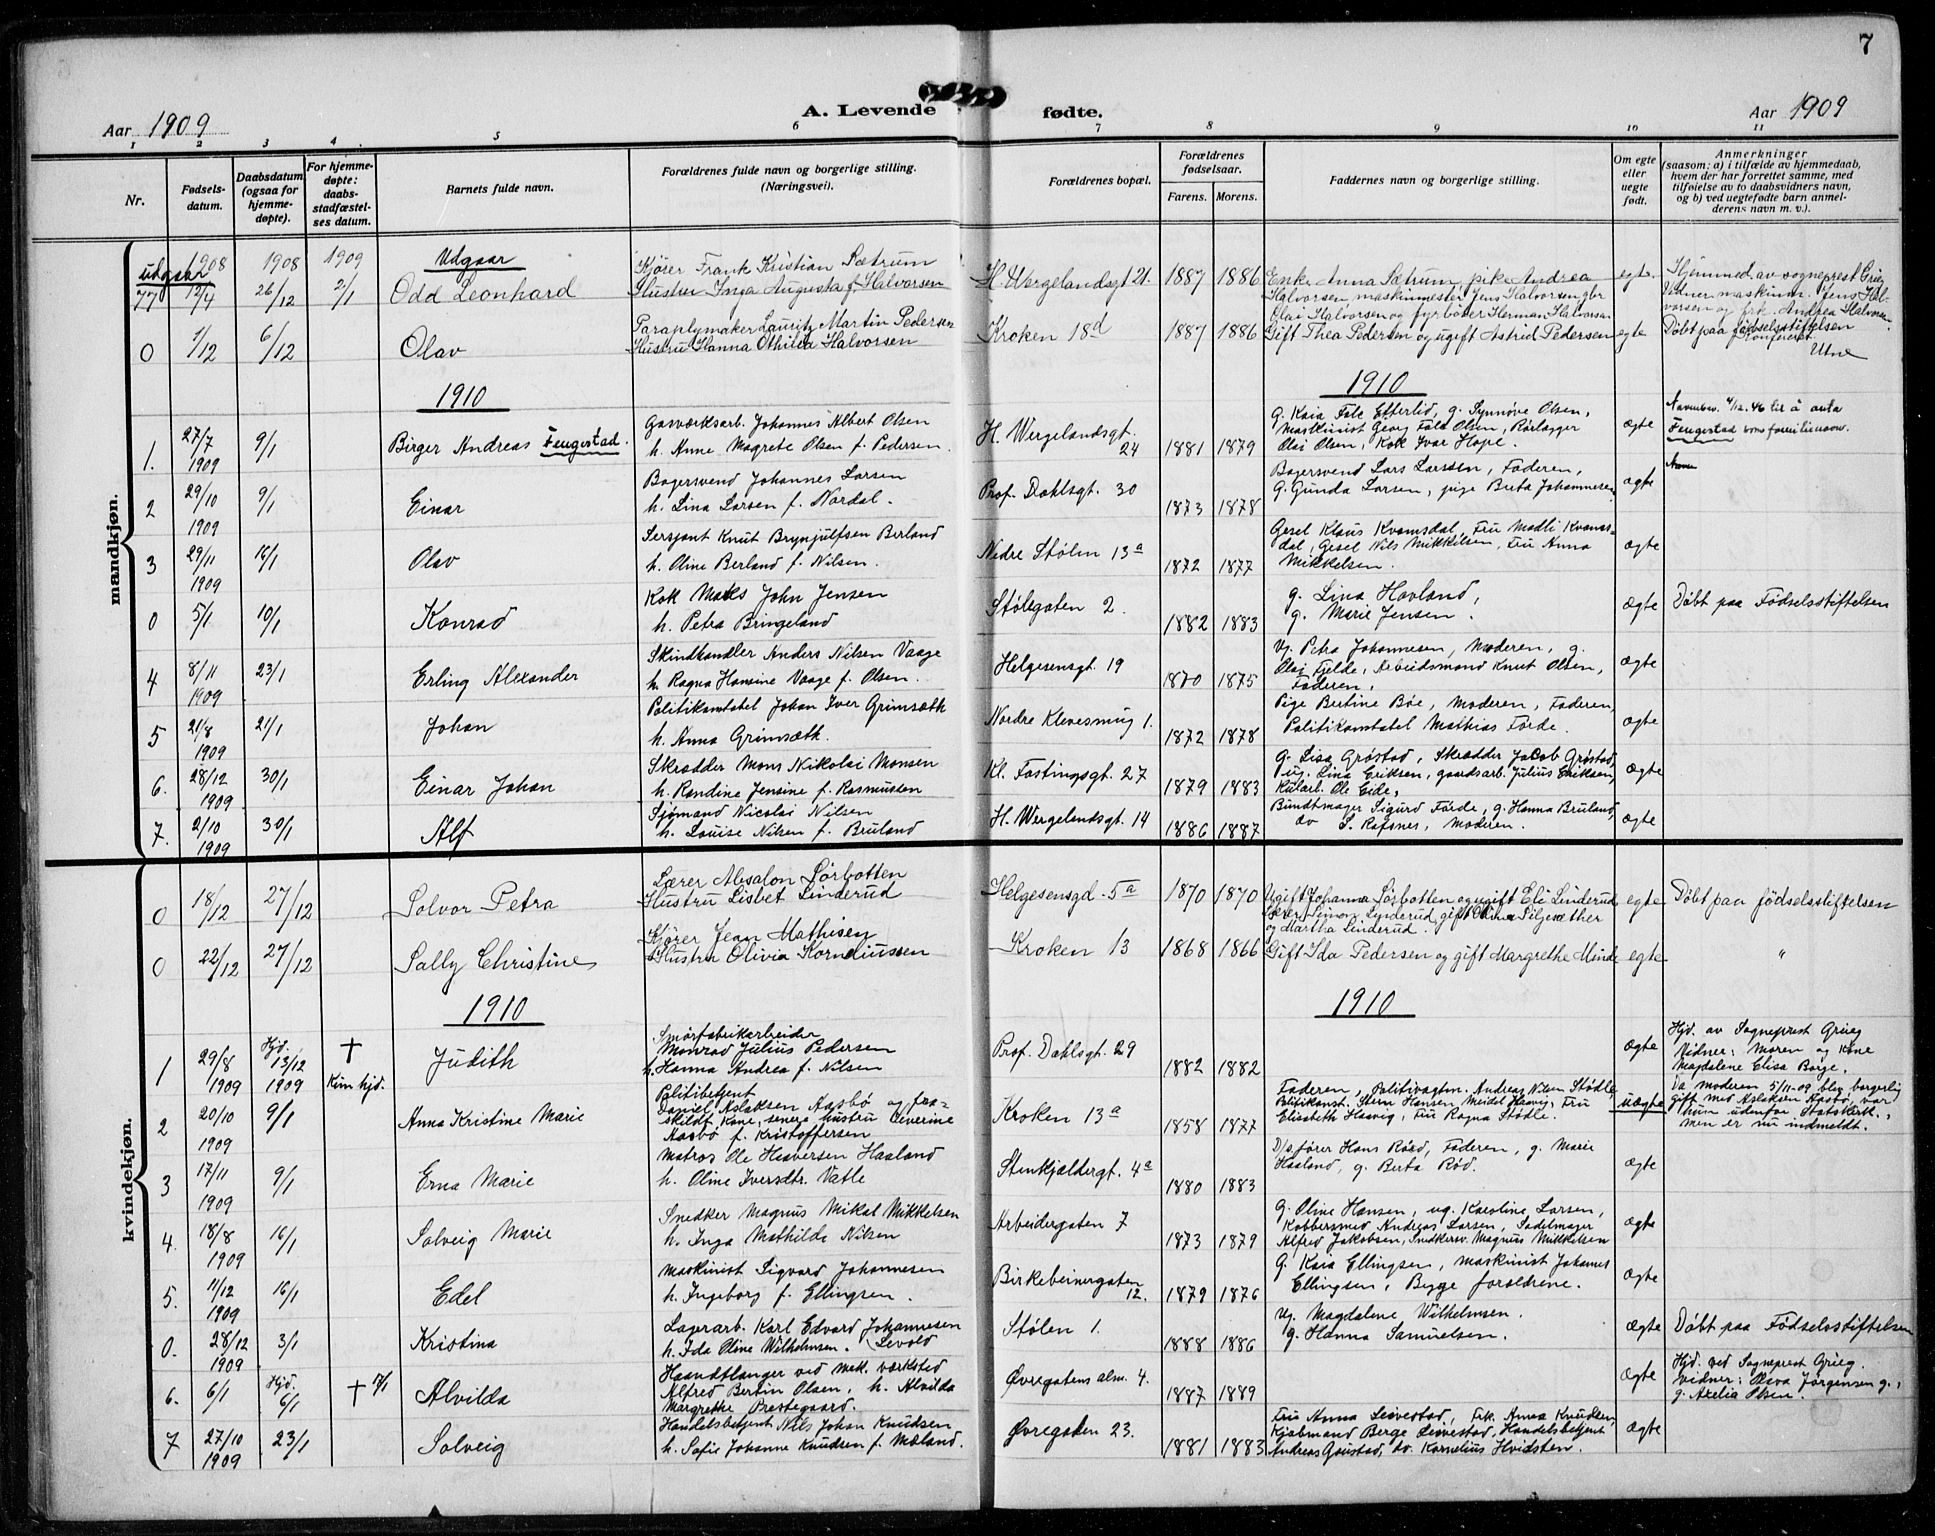 7
Aar 1909
A. Levende fødte.
Aar 1909
1 2 3 4 5 6 7 8 9 10 11
Nr.
Fødsels-
datum.
Daabsdatum
(ogsaa for
hjemme-
døpte).
For hjemme-
døpte:
daabs-
stadfæstel-
ses datum.
Barnets fulde navn.
Forældrenes fulde navn og borgerlige stilling.
(Næringsvei).
Forældrenes bopæl.
Forældrenes
fødselsaar.
Farens. Morens.
Faddernes navn og borgerlige stilling.
Om egte
eller
uegte
født.
Anmerkninger
(saasom: a) i tilfælde av hjemmedaab,
hvem der har forrettet samme, med
tilføielse av to daabsvidners navn,
og b) ved uegtefødte barn anmel-
derens navn m. v.).
mandkjøn.
udgaar 1908 1908 1909 Udgaar
77 12/4 26/12 2/1 Odd Leonhard
Kjører Frank Kristian Sætrum
Hustru Inga Augusta f. Halvorsen
H. Wergelandsgt 21. 1887 1886
Enke Anna Sætrum, pike Andrea
Halvorsen, maskinmester Jens Halvorsen gbr
Olai Halvorsen og fyrbøder Herman Halvorsen
egte
Hjemmed. av sogneprest Grieg
Vidner maskinm. Jens Hal-
vorsen og frk. Andrea Halvorsen.
0 1/12 6/12 Olav
Paraplymaker Lauritz Martin Pedersen
Hustru Hanna Othilia Halvorsen
Kroken 18d 1887 1886
Gift Thea Pedersen og ugift Astrid Pedersen
egte
Døbt paa fødselsstiftelsen
Konfereret
Utne
1910
1910
1. 27/7 1909 9/1 Birger Andreas Fengestad.
Gasværksarb. Johannes Albert Olsen
h. Anne Magrete Olsen f. Pedersen.
H. Wergelandsgt. 24 1881 1879
g. Kaia Falc Efterlid, g. Synnøve Olsen,
Maskinist Georg Falc Olsen, Rørlægger
Olai Olsen, Kok Ivar Hope.
ægte
Navnebev. 4/12.46 til å anta
Fengestad som familienavn.
2 29/10 1909 9/1 Einar
Bagersvend Johannes Larsen
h. Lina Larsen f. Nordal.
Prof. Dahlsgt. 30 1873 1878
Bagersvend Lars Larssen, Faderen,
g. Gunda Larsen, pige Berta Johannesen
ægte
3 29/11 1909 16/1 Olav
Sersjant Knut Brynjulfsen Berland
h. Oline Berland f. Nilsen.
Nedre Stølen 13a 1872 1877
Gesel Klaus Kvamsdal, Fru Madli Kvams-
dal, Gesel Nils Mikkelsen, Fru Anna
Mikkelsen.
ægte
0 5/1 10/1 Konrad
Kok Maks John Jensen
h. Petra Bringeland
Stølegaten 2. 1882 1883
g. Lina Hovland,
g. Marie Jensen.
ægte
Døbt paa Fødselsstiftelsen
4 8/11 1909 23/1 Erling Alexander
Skindhandler Anders Nilsen Vaage
h. Ragna Hansine Vaage f. Olsen.
Helgesensgt. 19 1870 1875
Ug. Petra Johannesen, Moderen, g.
Olai Fjelde, Arbeidsmand Knut Olsen,
Faderen,
ægte
5 21/8 1909 21/1 Johan
Politikonstabel Johan Iver Grimsæth
h. Anna Grimsæth.
Nordre Klevesmug 1. 1872 1878
Pige Bertine Bøe, Moderen, Faderen,
Politikonstabel Mathias Førde.
ægte
6. 28/12 1909 30/1 Einar Johan
Skrædder Mons Nikolai Monsen
h. Randine Jensine f. Rasmussen
Kl. Fastingsgt. 27 1879 1883
g. Lisa Grøstad, Skrædder Jakob Grøstad,
ug. Lina Eriksen, gaardsarb. Julius Eriksen,
Kularb. Ole Eide,
ægte
7. 2/10 1909 30/1 Alf
Sjømand Nicolai Nilsen
h. Louise Nilsen f. Bruland
H. Wergelandsgt. 14 1886 1887
Bundtmager Sigurd Førde, g. Hanna Bruland,
S. Rafsnes, Moderen.
ægte
kvindekjøn.
0 18/12 27/12 Solvor Petra
Lærer Absalon Sørbotten
Hustru Lisbet Linderud
Helgesensgd. 5a 1870 1870
Ugift Johanna Sørbotten og ugift Eli Linderud
Lærer Simon Linderud, gift Olina Siljesæther
og Martha Linderud.
egte
Døbt paa fødselsstiftelsen
0 22/12 27/12 Sally Christine
Kjører Jean Mathisen
Hustru Olivia Korneliussen
Kroken 13 1868 1866
Gift Ida Pedersen og gift Margrethe Minde
egte "
1910
1910
1 29/8 1909 Hjd. 13/12 1909 † Kim hjd. Judith
Smørfabrikarbeider
Monrad Julius Pedersen
h. Hanna Andrea f. Nilsen
Prof. Dahlsgt. 29 1882 1882
ægte
Hjd. av Sogneprest Grieg
Vidner: Moren og Kone
Magdalene Elisa Borge.
2 20/10 1909 9/1 Anna Kristine Marie
Politibetjent
Daniel Aslaksen Aasbø og fra-
skildt Kone, senere hustru Severine
Aasbø f. Kristoffersen
Kroken 13a 1858 1877
Faderen, Politivagtm. Andreas Nilsen Stødle,
Politikonst. Steen Hansen Meidel Hasvig, Fru
Elisabeth Hasvig, Fru Ragna Stødle.
uægte
Da moderen 5/11-09 blev borgerlig
gift med Aslaksen Aasbø, var
hun udenfor Statskirk.,
men er nu indmeldt.
3 17/11 1909 9/1 Erna Marie
Matros Ole Haaversen Haaland
h. Oline Iversdtr. Vatle
Stenkjældergt. 4a 1880 1883
D/sfører Hans Røed, Faderen, g. Marie
Haaland, g. Berta Rød.
ægte
4. 18/8 1909 16/1 Solveig Marie
Snedker Magnus Mikal Mikkelsen
h. Inga Mathilde Nilsen
Arbeidergaten 7 1873 1879
g. Oline Hansen, ug. Karoline Larsen,
Kobbersmed Andreas Larsen, Sadelmager
Alfred Jakobsen, Snedkersv. Magnus Mikkelsen
ægte
5. 11/12 1909 16/1 Edel
Maskinist Sigvard Johannesen
h. Ingeborg f. Ellingsen.
Birkebeinergaten 12. 1879 1876
g. Kaia Ellingsen, Maskinist Johannes
Ellingsen, Begge forældrene.
ægte
0. 28/12 1909 3/1 Kristina
Lagerarb. Karl Edvard Johannesen
h. Ida Oline Wilhelmsen. Levold
Stølen 1. 1888 1886
Ug. Magdalene Wilhelmsen.
g. Hanna Samuelsen.
ægte
Døbt paa Fødselsstiftelsen
6. 6/1 Hjd. 6/1 † 17/1 Alvilda
Haandtlanger ved mek. værksted
Alfred Bertin Olsen, h. Alvilda
Margrethe Prestegaard.
Øvregatens alm. 4. 1887 1889
ægte
Hjd. ved Sogneprest Grieg.
Vidner: Olava Jørgensen g.,
g. Axelia Olsen.
7 27/10 1909 23/1 Solveig
Handelsbetjent Nils Johan Knudsen
h. Sofie Johanne Knudsen f. Mæland.
Øvregaten 23. 1881 1883
Fru Anna Leivestad, Frk. Anna Knudsen,
Kjøbmand Berge Leivestad, Handelsbetjent
Andreas Gaustad, do. Kornelius Hvidsten.
ægte